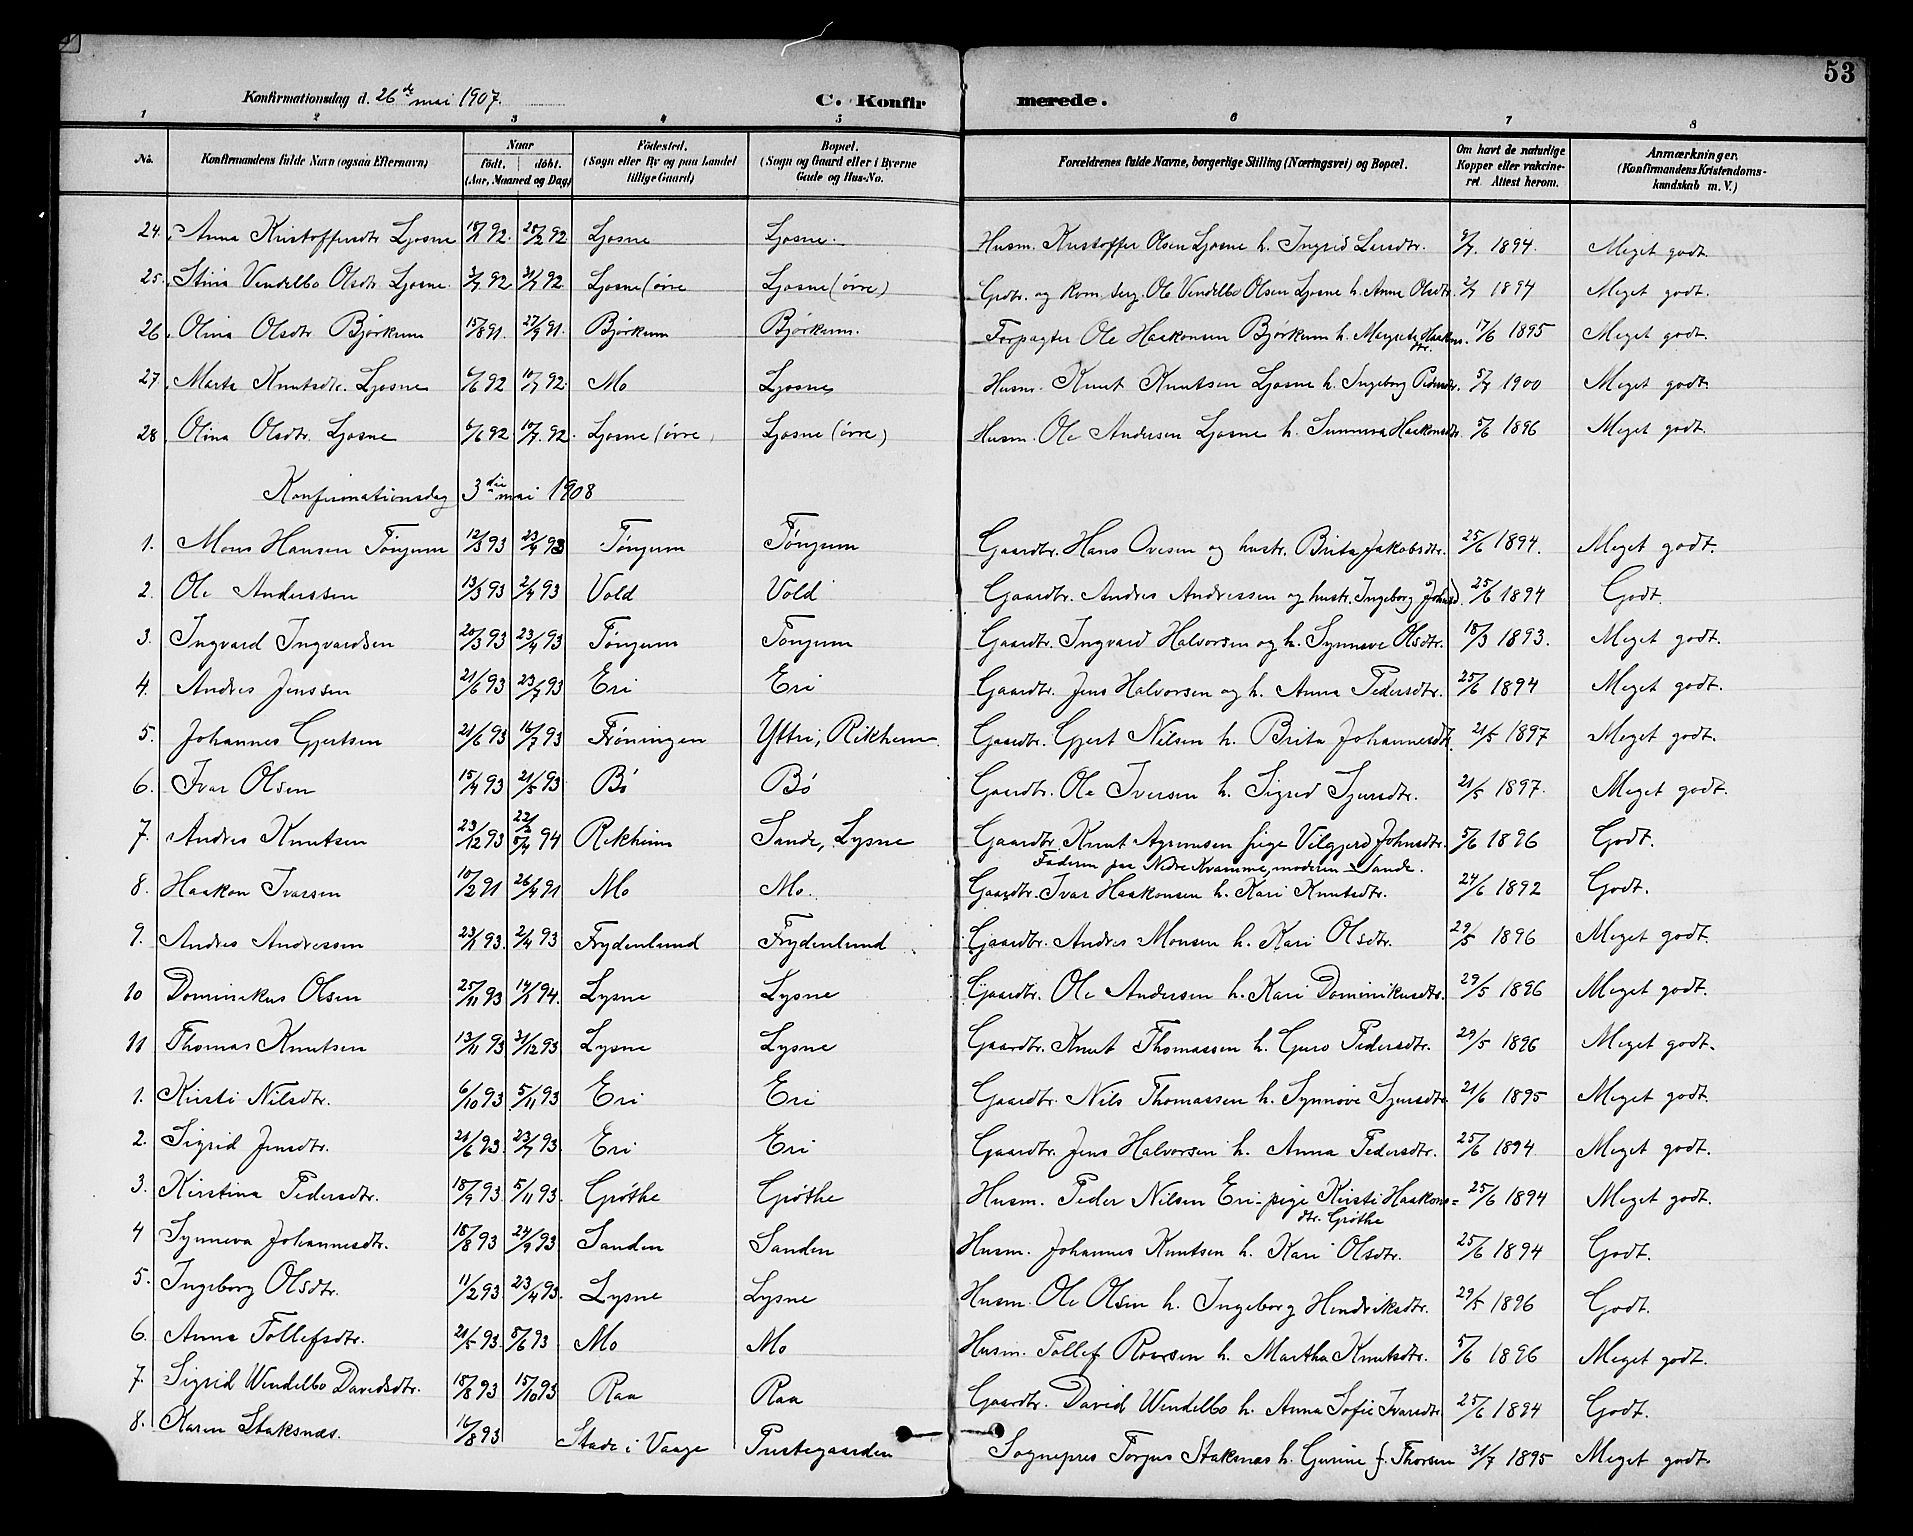 53
Konfirmationsdag d. 26de mai 1907. C. Konfirmerede.
1 2 3 4 5 6 7 8
No. Konfirmandens fulde Navn (ogsaa Efternavn) Naar født, døbt. (Aar, Maaned og Dag) Fødested. (Sogn eller By og paa Landet tillige Gaard) Bopæl. (Sogn og Gaard eller i Byerne Gade og Hus-No. Forældrenes fulde Navne, borgerlige Stilling (Næringsvei) og Bopæl. Om havt de naturlige Kopper eller vakcineret Attest herom. Anmærkninger. (Konfirmandens Kristendomskundskab m. V.)
24. Anna Kristoffersdtr Ljosne 92. 25/2 92 Ljosne Ljosne. Husm. Kristoffer Olsen Ljosne h. Ingrid Larsdtr. 1894. Meget godt.
25. Stina Vendelbo Olsdtr. Ljosne. 92 92 Ljosne (øvre Ljosne (øvre) Grdbr. og kom. serg. Ole Vendelbo Olsen Ljosne h. Anna Olsdtr. 1894 Meget godt.
26. Olina Olsdtr Bjørkum 15/8 91. 27/9 91. Bjørkum Bjørkum. Forpagter Ole Haakonsen Bjørkum h. Margrete Haakonsdtr. 17/6 1895 Meget godt.
27. Marta Knutsdtr. Ljosne 6/6 92 10/7 92. Mo Ljosne Husm. Knut Knutsen Ljosne h. Ingeborg Pedersdtr. 5/7 1900 Meget godt.
28. Olina Olsdtr. Ljosne 6/6 92 10/7. 92. Ljosne (øvre) Ljosne (øvre) Husm. Ole Andersen Ljosne h. Sunneva Haakonsdtr. 5/6 1896 Meget godt.
Konfirmationsdag 3die mai 1908
1. Mons Hansen Tønjum 12/3 93 23/4 93 Tønjum Tønjum Gaardbr. Hans Ovesen og hustr. Brita Jakobsdtr. 25/6 1894. Meget godt.
2. Ole Anderssen 13/3 93 2/4 93 Vold Vold Gaardbr. Andres Andressen og hustr. Ingeborg Johnsd. 25/6 1894 Godt.
3. Ingvard Ingvardsen 20/3 93 23/4 93 Tønjum Tønjum Gaardbr. Ingvard Halvorsen og h. Synneve Olsdtr. 18/3 1893. Meget godt.
4. Andres Jenssen 21/6 93 23/7 93 Eri Eri Gaardbr. Jens Halvorsen og h. Anna Pedersdtr. 25/6 1894 Meget godt.
5. Johannes Gjertsen 21/6 93 16/7 93 Frøningen Yttri, Rikheim Gaardbr. Gjert Nilsen h. Brita Johannesdtr. 21/5 1897 Meget godt.
6. Ivar Olsen 15/4 93 21/5 93. Bø Bø Gaardbr. Ole Iversen h. Sigrid Sjursdtr. 21/5 1897. Meget godt.
7. Andres Knutsen 23/12 93 22/2 94 Rikheim Sande, Lysne Gaardbr. Knut pige Vilgjerd Johnsdtr. 5/6 1896 Godt.
Faderen paa Nedre Kvamme, moderen – Sande.
8. Haakon Ivarsen 10/2 91 26/4 91 Mo Mo. Gaardbr. Ivar Haakonsen h. Kari Knutsdtr. 24/6 1892 Godt.
9. Andres Andressen 93. 2/4 93 Frydenlund Frydenlund Gaardbr. Andres Monsen h. Kari Olsdtr. 29/5 1896 Meget godt.
10 Dominikus Olsen 25/11 93 14/1 94. Lysne Lysne Gaardbr. Ole Andersen h. Kari Dominikusdtr. 29/5 1896 Meget godt.
11 Thomas Knutsen 13/11 93 31/12 93. Lysne Lysne Gaardbr. Knut Thomassen h. Guro Pedersdtr. 29/5 1896 Meget godt.
1. Kirsti Nilsdtr. 6/10 93 5/11 93 Eri Eri Gaardbr. Nils Thomassen h. Synnøve Sjursdtr. 21/6 1895 Meget godt.
2. Sigrid Jensdtr. 21/6 93. 23/7 93. Eri Eri Gaardbr. Jens Halvorsen h. Anna Pedersdtr. 25/6 1894 Meget godt.
3. Kirstina Pedersdtr. 18/9 93 5/11 93. Grøthe Grøthe Husm. Peder Nilsen Eri pige Kirsti Haakonsdtr. Grøthe 25/6 1894 Meget godt.
4 Synneva Johannesdtr. 18/8 93 24/9 93. Sanden Sanden Husm. Johannes Knutsen h. Kari Olsdtr. 25/6 1894 Godt.
5. Ingeborg Olsdtr. 11/2 93 23/4 93. Lysne Lysne Husm. Ole Olsen h. Ingeborg Hendriksdtr. 29/5 1896 Godt.
6. Anna Tollefsdtr. 21/5 93. 93 Mo Mo Husm. Tollef Roarsen h. Martha Knutsdtr. 5/6 1896 Meget godt.
7. Sigrid Wendelbo Davidsdtr. 18/8 93 15/10 93 Raa Raa Gaardbr. David Wendelbo h. Anna Sofie Ivarsdtr 25/6 1894 Godt.
8. Karen Staksnæs. 16/8 93 Stade i Vaage Prestegaarden Sognepres Torjus Staksnæs h. Gurine f. Thorsen 31/7 1895 Meget godt.